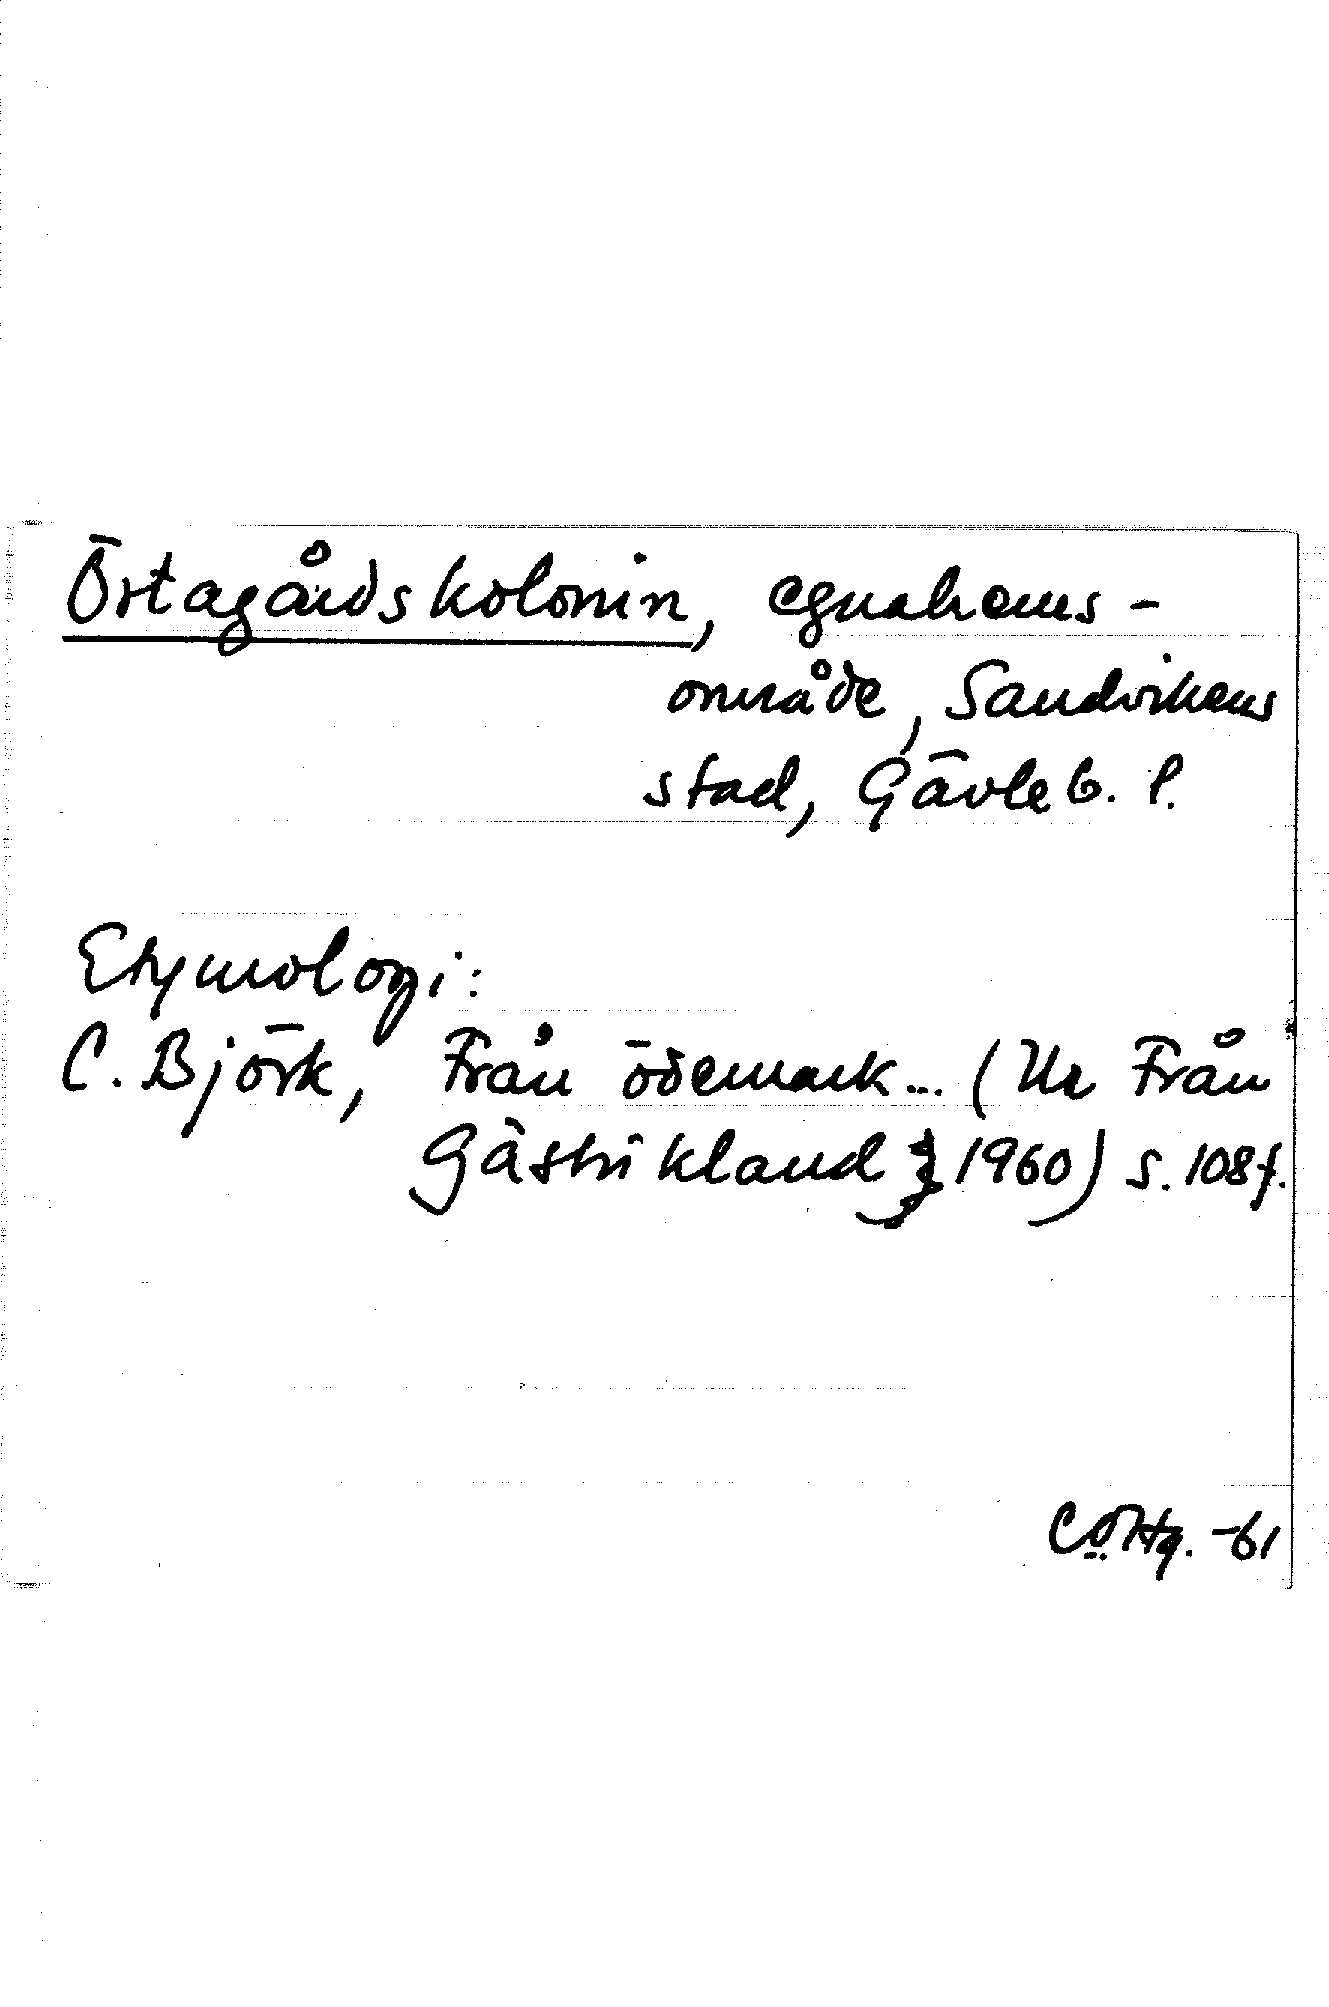 Örtagårdskolonin, egnahems-
område, Sandvikens
stad, Gävleb. l.
Etymologi:
C. Björk, Från ödemark... (Ur Från
Gästrikland 1960) s. 108f.
CÖHg. -61